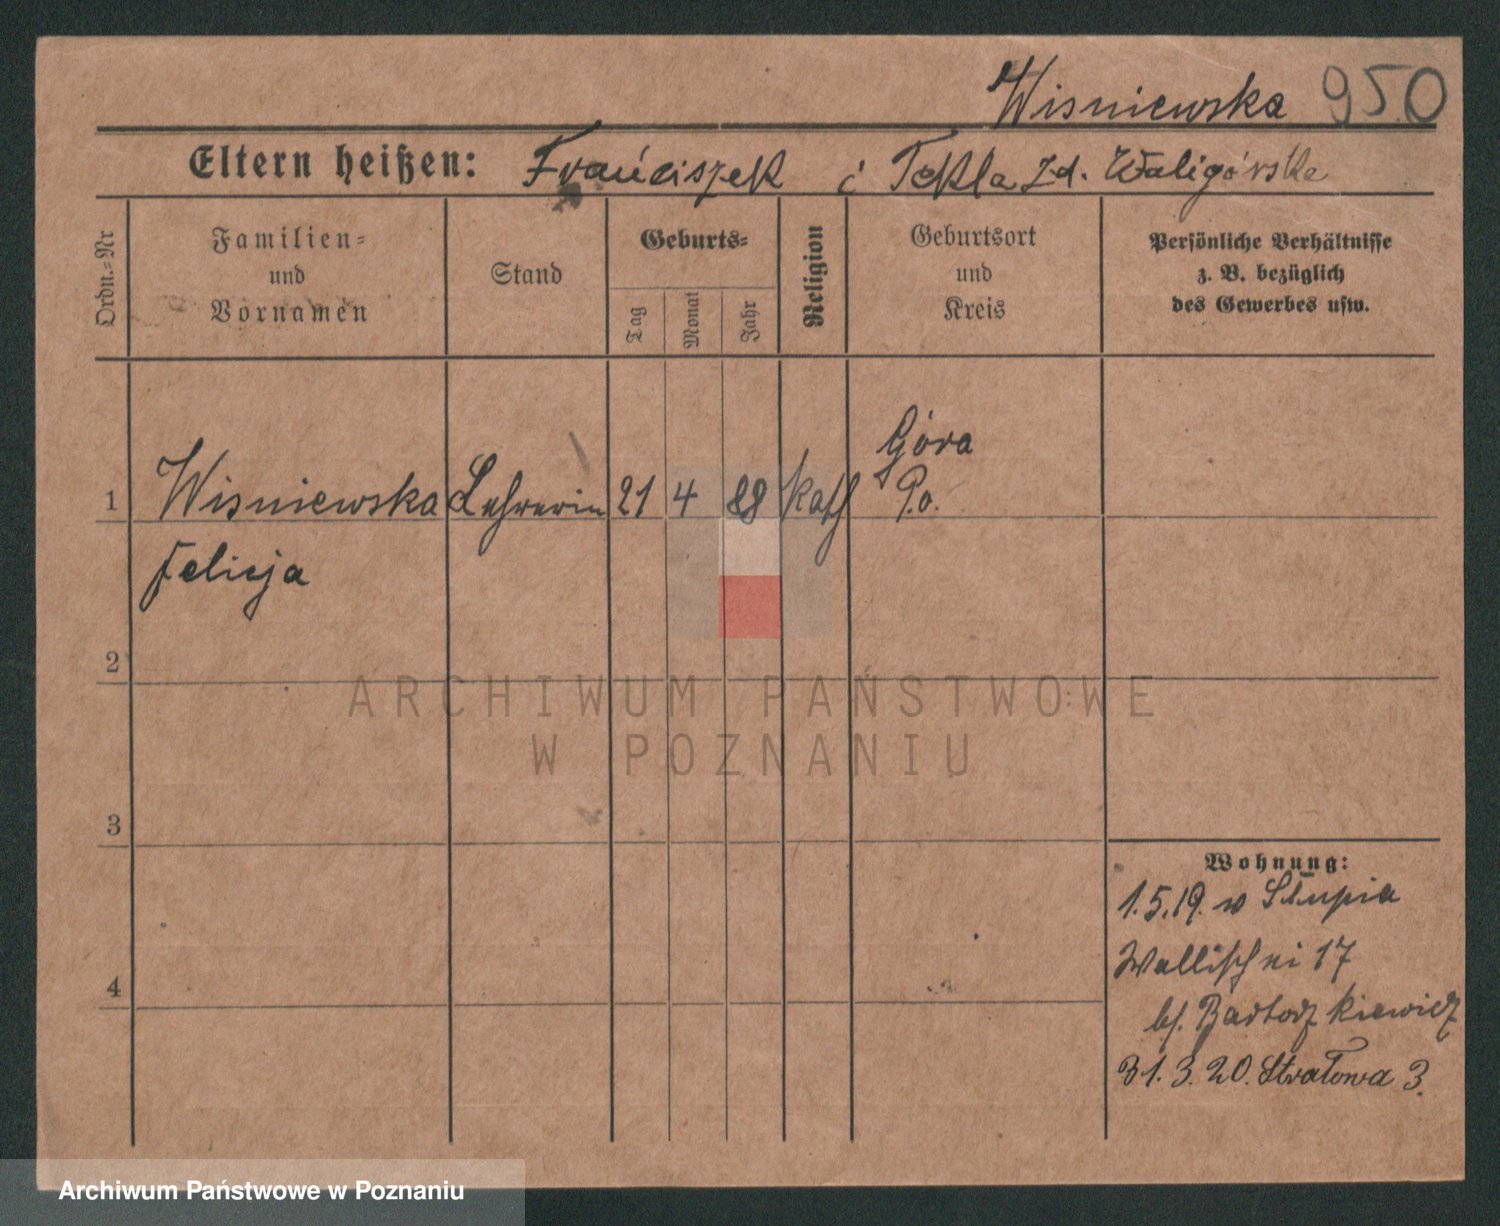 Wisniewska 950
Eltern heißen: Franciszek i Tekla zd. Waligórska
Ordn.-Nr
Familien-
und
Vornamen
Stand
Geburts-
Tag
Monat
Jahr
Religion
Geburtsort
und
Kreis
Persönliche Verhältnisse
z. B. bezüglich
des Gewerbes usw.
Góra
1 Wisniewska Lehrerin 21 4 88 kath P.o.
Felicja
2
ARCHIWUM PAŃSTWOWE
W POZNANIU
3
Wohnung:
1.5.19. w Słupia
Wallischei 17
4
bf. Bartoszkiewicz
31.3.20. Strałowa 3.
Archiwum Państwowe w Poznaniu